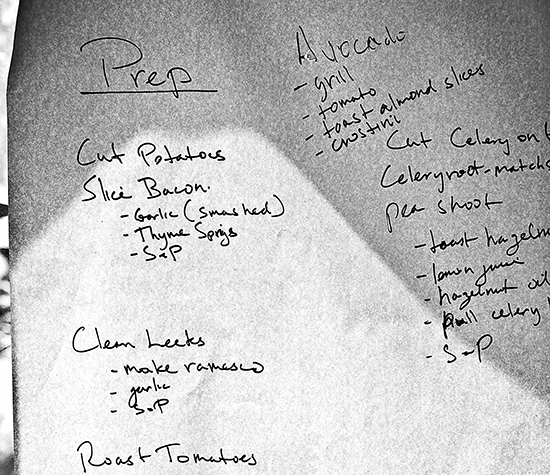 Prep
Cut Potatoes
Slice Bacon.
- Garlic (smashed)
- Thyme Sprigs
- S+P
Clean Leeks
- make ramesco
- garlic
- S+P
Roast Tomatoes
Avocado
- grill
- tomato
- toast almond slices
- crostini
Cut Celery on
Celeryroot - matchs
pea shoot
- toast hazeln
- lemon juice
- hazelnut oil
- pull celery
- S+P